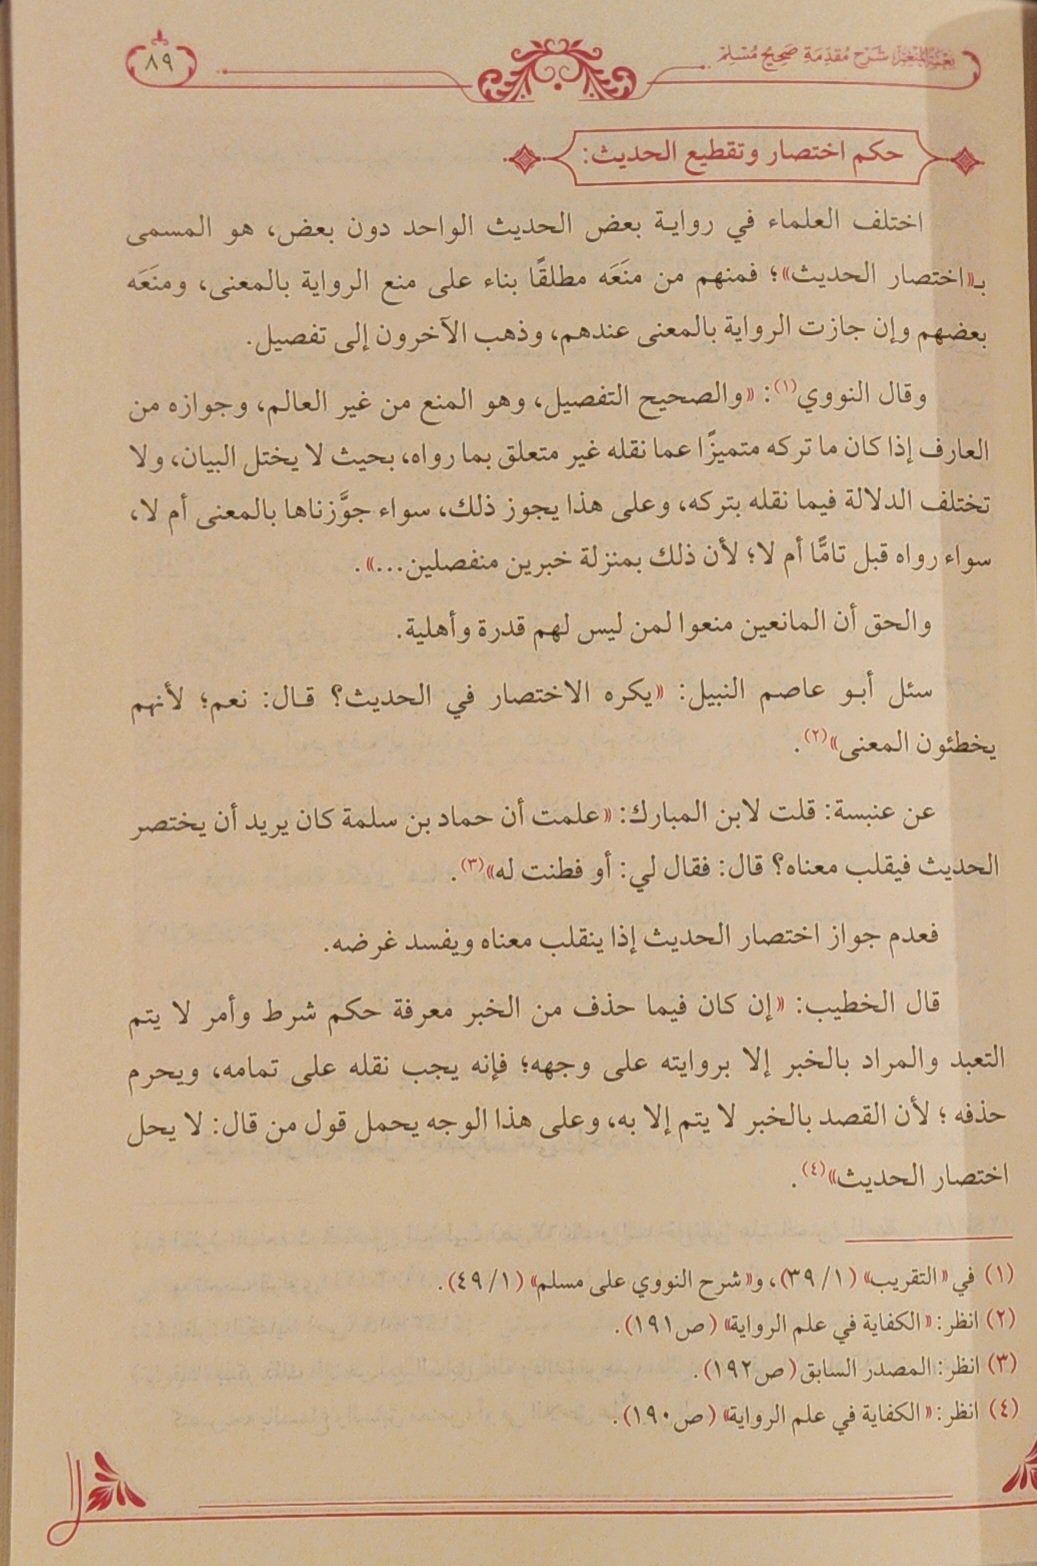 شَرْح مُقَدِّمَةِ صَحِيحِ مُسْلِمْ
٨٩
حكم اختصار وتقطيع الحديث:
اختلف العلماء في رواية بعض الحديث الواحد دون بعض، هو المسمى
بـ«اختصار الحديث»؛ فمنهم من منَعَه مطلقًا بناء على منع الرواية بالمعنى، ومنَعَه
بعضهم وإن جازت الرواية بالمعنى عندهم، وذهب الآخرون إلى تفصيل.
وقال النووي(١): «والصحيح التفصيل، وهو المنع من غير العالم، وجوازه من
العارف إذا كان ما تركه متميزًا عما نقله غير متعلق بما رواه، بحيث لا يختل البيان، ولا
تختلف الدلالة فيما نقله بتركه، وعلى هذا يجوز ذلك، سواء جوَّزناها بالمعنى أم لا،
سواء رواه قبل تامًّا أم لا؛ لأن ذلك بمنزلة خبرين منفصلين...».
والحق أن المانعين منعوا لمن ليس لهم قدرة وأهلية.
سئل أبو عاصم النبيل: «يكره الاختصار في الحديث؟ قال: نعم؛ لأنهم
يخطئون المعنى»(٢).
عن عنبسة: قلت لابن المبارك: «علمت أن حماد بن سلمة كان يريد أن يختصر
الحديث فيقلب معناه؟ قال: فقال لي: أو فطنت له»(٣).
فعدم جواز اختصار الحديث إذا ينقلب معناه ويفسد غرضه.
قال الخطيب: «إن كان فيما حذف من الخبر معرفة حكم شرط وأمر لا يتم
التعبد والمراد بالخبر إلا بروايته على وجهه؛ فإنه يجب نقله على تمامه، ويحرم
حذفه؛ لأن القصد بالخبر لا يتم إلا به، وعلى هذا الوجه يحمل قول من قال: لا يحل
اختصار الحديث»(٤).
(١) في «التقريب» (١/ ٣٩)، و«شرح النووي على مسلم» (١/ ٤٩).
(٢) انظر: «الكفاية في علم الرواية» (ص١٩١).
(٣) انظر: المصدر السابق (ص١٩٢).
(٤) انظر: «الكفاية في علم الرواية» (ص١٩٠).